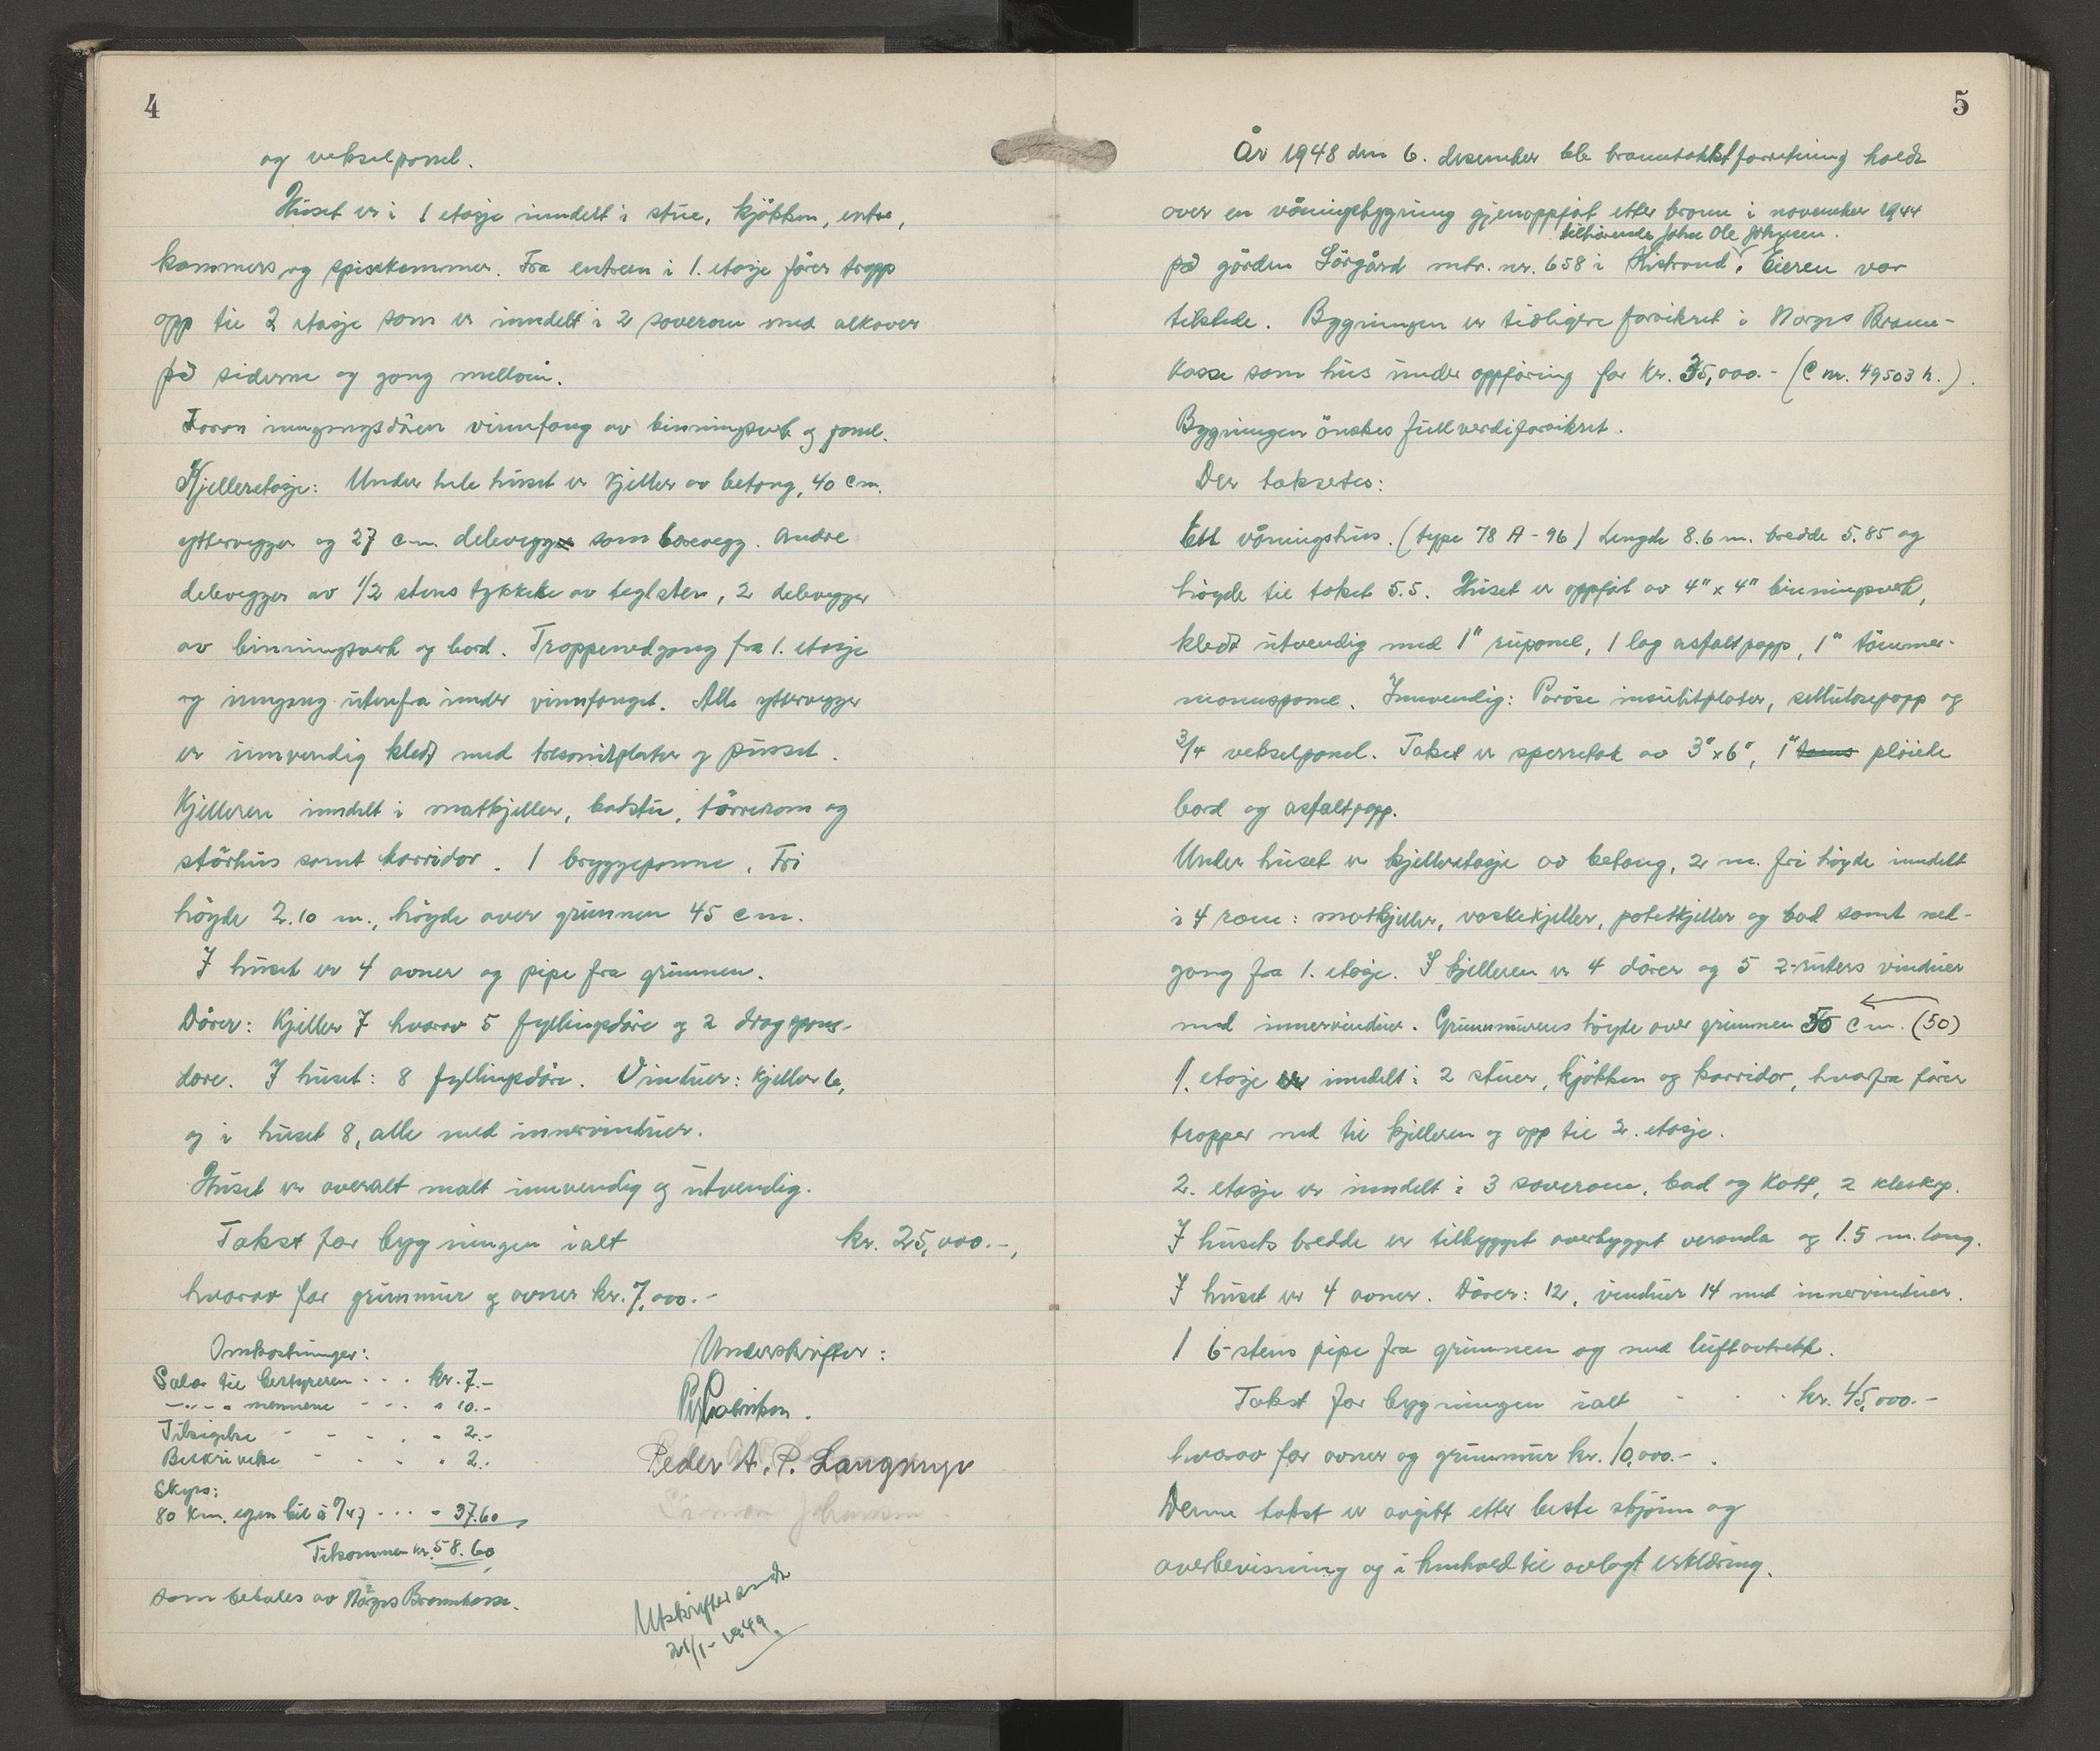 4
og vekselpanel.
Huset er i 1 etasje inndelt i stue, kjökken, entre,
kammers og spisekammer. Fra entreen i 1. etasje förer trapp
opp til 2 etasje som er inndelt i 2 soverom med alkover
på siderne og gang mellom.
Foran inngangsdören vinnfang av binningsverk og panel.
Kjelleretasje: Under hele huset er kjeller av betong, 40 cm.
yttervegger og 27 cm. delevegg som bærevegg. Andre
delevegger av 1/2 stens tykkelse av teglsten, 2 delevegger
av binningsverk og bord. Trappenedgang fra 1. etasje
og inngang utenfra under vinnfanget. Alle yttervegger
er innvendig kledd med tresonitplater og pusset.
Kjelleren inndelt i matkjeller, badstu, törrerom og
störhus samt korridor. 1 bryggepanne. Fri
höyde 2.10 m., höyde over grunnen 45 cm.
I huset er 4 ovner og pipe fra grunnen.
Dörer: Kjeller 7 hvorav 5 fyllingsdöre og 2
döre. I huset: 8 fyllingsdöre. Vinduer: kjeller 6,
og i huset 8, alle med innervinduer.
Huset er overalt malt innvendig og utvendig.
Takst for bygningen ialt kr. 25,000.-,
hvorav for grunnmur og ovner kr. 7,000.-
Omkostninger:
Salær til bestyreren . . . kr. 7.-
-"- - " mennene - - - " 10.-
Tilsigelse - - - . " 2.-
Beskrivelse - - . . " 2.-
Skyss:
80 Km. egen bil á 0/47 . . . " 37.60
Tilsammen kr. 58.60
som betales av Norges Brannkasse.
Underskrifter:
Peder A. P.
Utskrifter sendt
21/1-1949.
5
År 1948 den 6. desember ble branntakstforretning holdt
over en våningsbygning gjenoppfört etter brann i november 1944
tilhörende John Ole Johnsen.
på gården Sörgård mtr. nr. 658 i Kistrand. Eieren var
tilstede. Bygningen er tidligere forsikret i Norges Brann-
kasse som hus under oppföring for kr. 35,000.- (C nr. 49503 h.).
Bygningen önskes fullverdiforsikret.
Der taksertes:
Ett våningshus. (type 78 A - 96) Lengde 8.6 m. bredde 5.85 og
höyde til taket 5.5. Huset er oppfört av 4" x 4" binningsverk,
kledt utvendig med 1" rupanel, 1 lag asfaltpapp, 1" tömmer-
mannspanel. Innvendig: Poröse insulitplater, cellulosepapp og
3/4 vekselpanel. Taket er sperretak av 3" x 6", 1" plöiede
bord og asfaltpapp.
Under huset er kjelleretasje av betong, 2 m. fri höyde inndelt
i 4 rom: matkjeller, vaskekjeller, potetkjeller og bad samt ned-
gang fra 1. etasje. I kjelleren er 4 dörer og 5 2-ruters vinduer
med innervinduer. Grunnmurens höyde over grunnen 50 cm. (50)
1. etasje er inndelt i 2 stuer, kjökken og korridor, hvorfra förer
trapper ned til kjelleren og opp til 2. etasje.
2. etasje er inndelt i 3 soverom, bad og kott, 2 kleskap.
I husets bredde er tilbygget overbygget veranda og 1.5 m. lang.
I huset er 4 ovner. Dörer: 12, vinduer 14 med innervinduer.
1 6-stens pipe fra grunnen og med luftavtrekk.
Takst for bygningen ialt - . . kr. 45,000.-
hvorav for ovner og grunnmur kr. 10,000.-.
Denne takst er avgitt etter beste skjönn og
overbevisning og i henhold til avlagt erklæring.